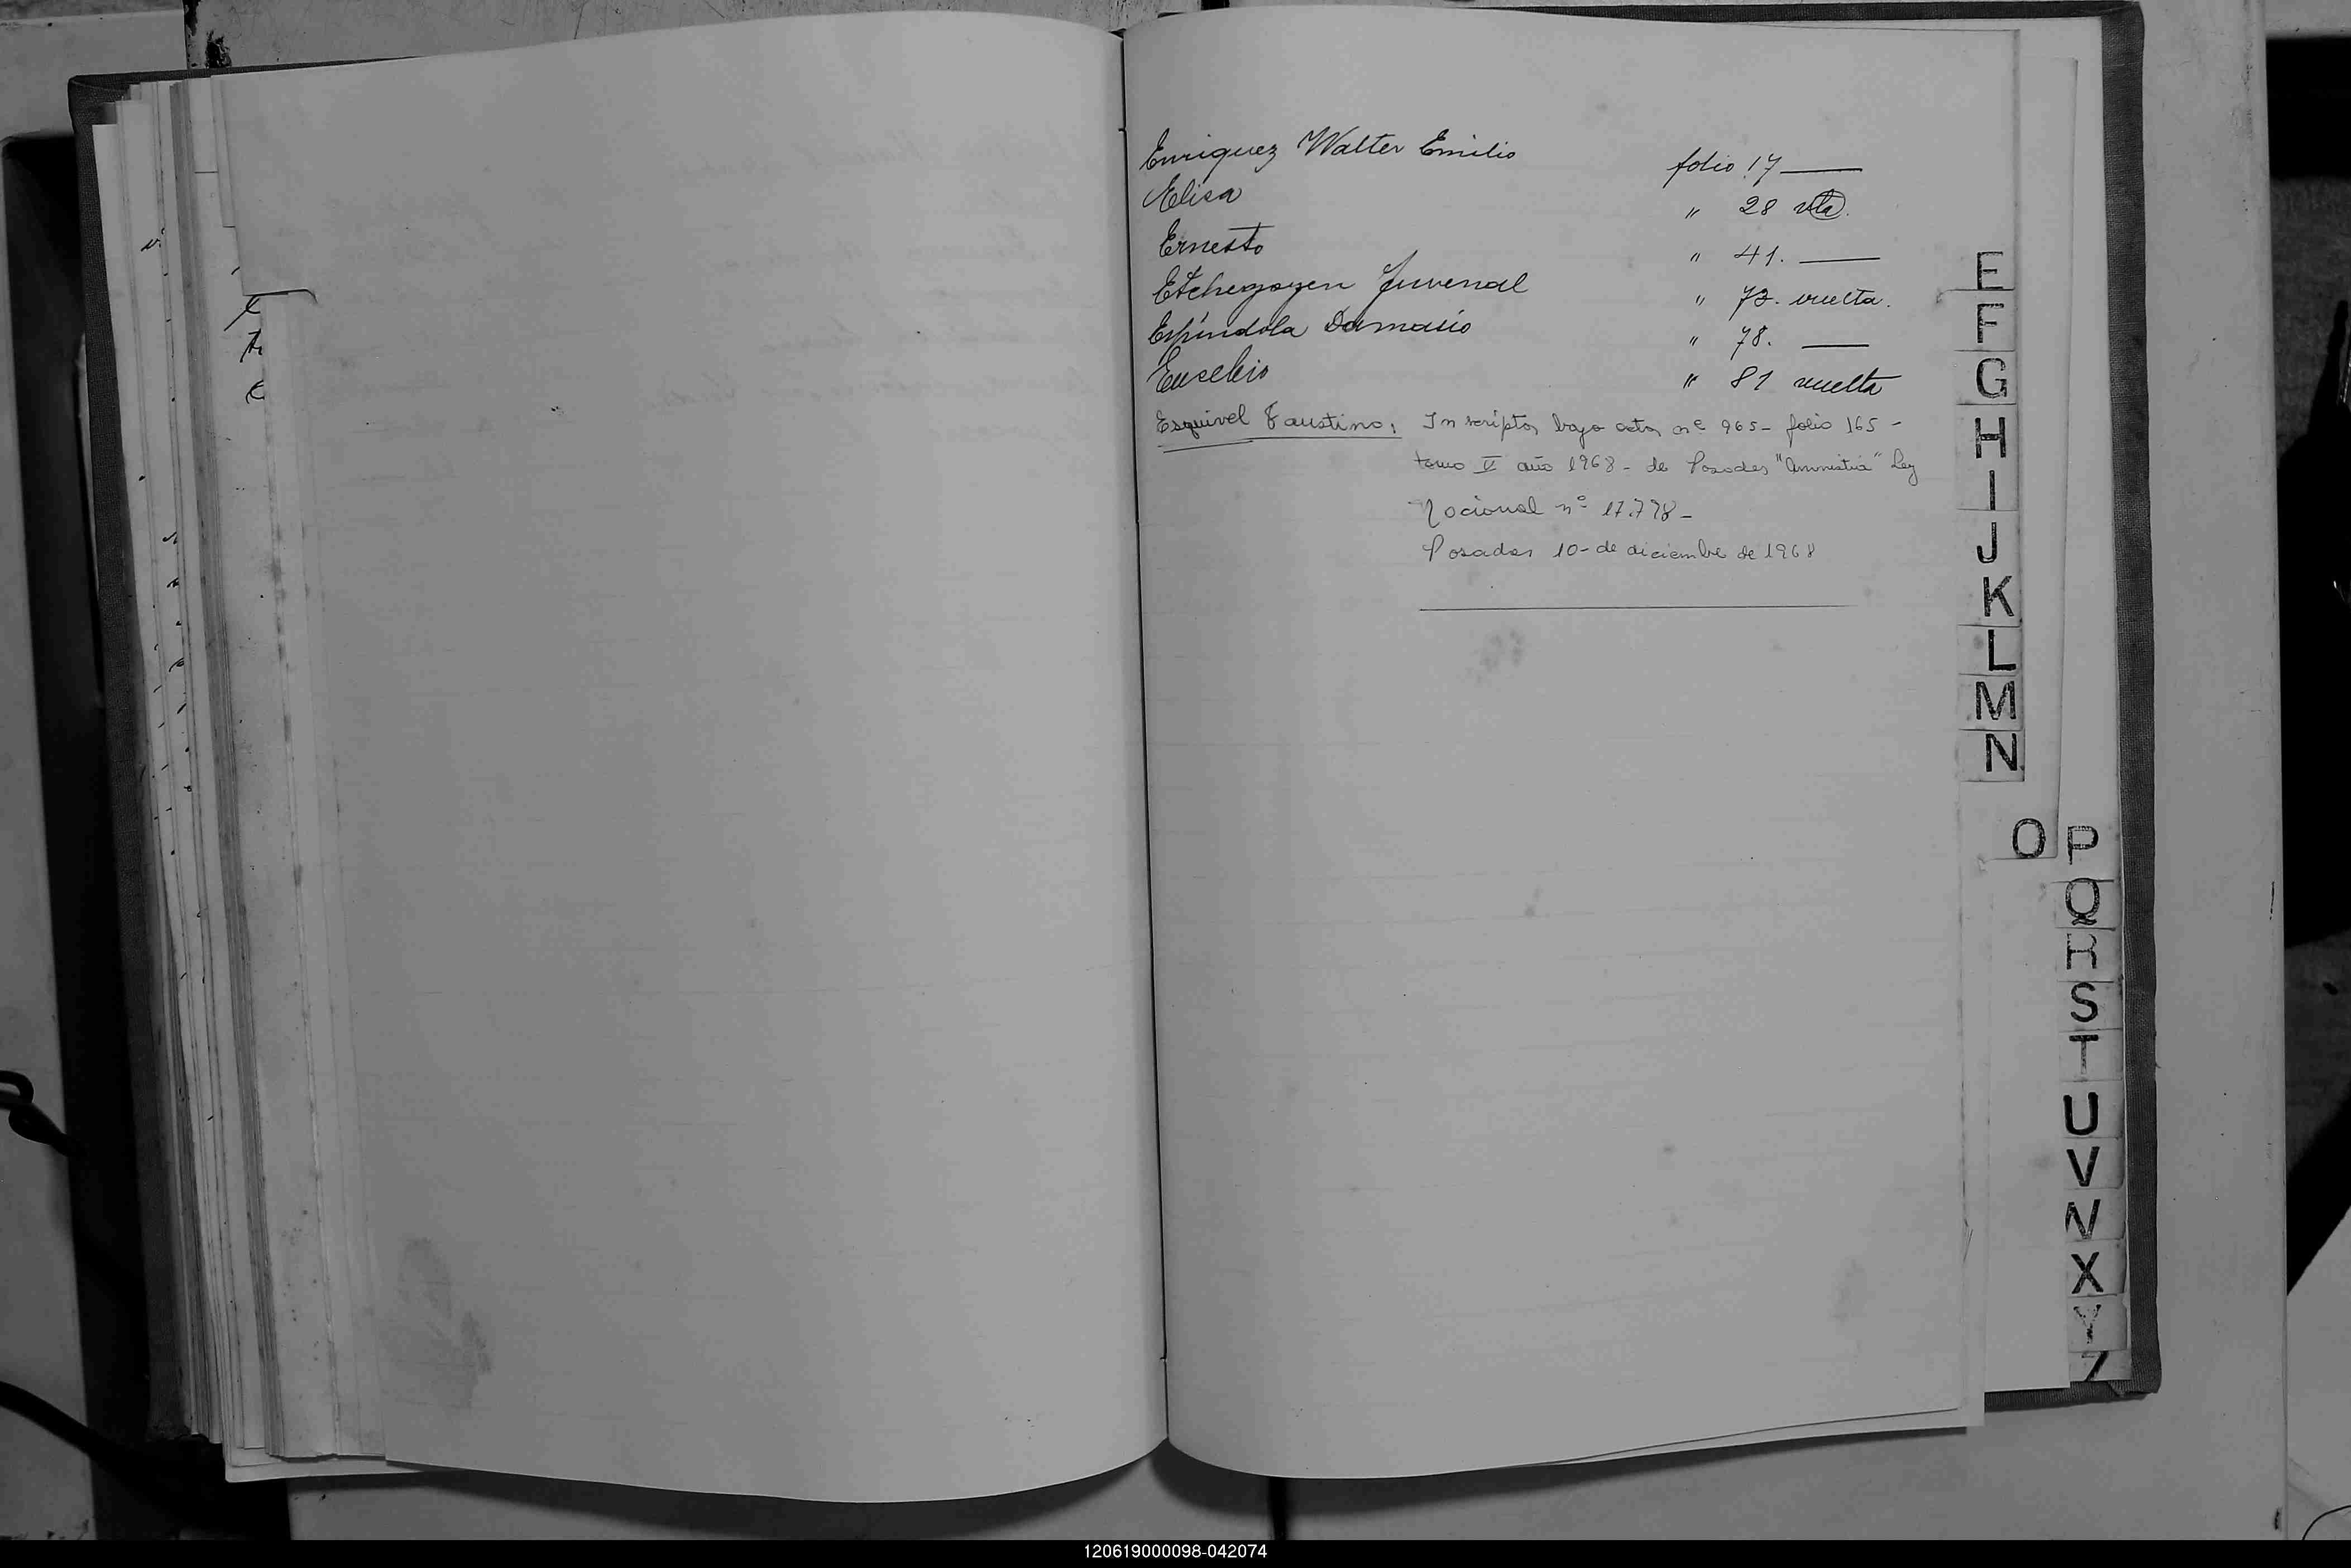 Enriquez Walter Emilio folio 17
Elisa " 28 vta.
Ernesto " 41.
Etchegoyen Juvenal " 72. vuelta.
Espíndola Damasio " 78.
Eusebio " 81 vuelta
Esquivel Faustino, Inscripto, bajo acta nº 965- folio 165 -
tomo V año 1968- de Posadas "Amnistia" Ley
Nacional nº 17.778-
Posadas 10- de diciembre de 1968
E
F
G
H
I
J
K
L
M
N
O
P
Q
R
S
T
U
V
W
X
Y
Z
120619000098-042074